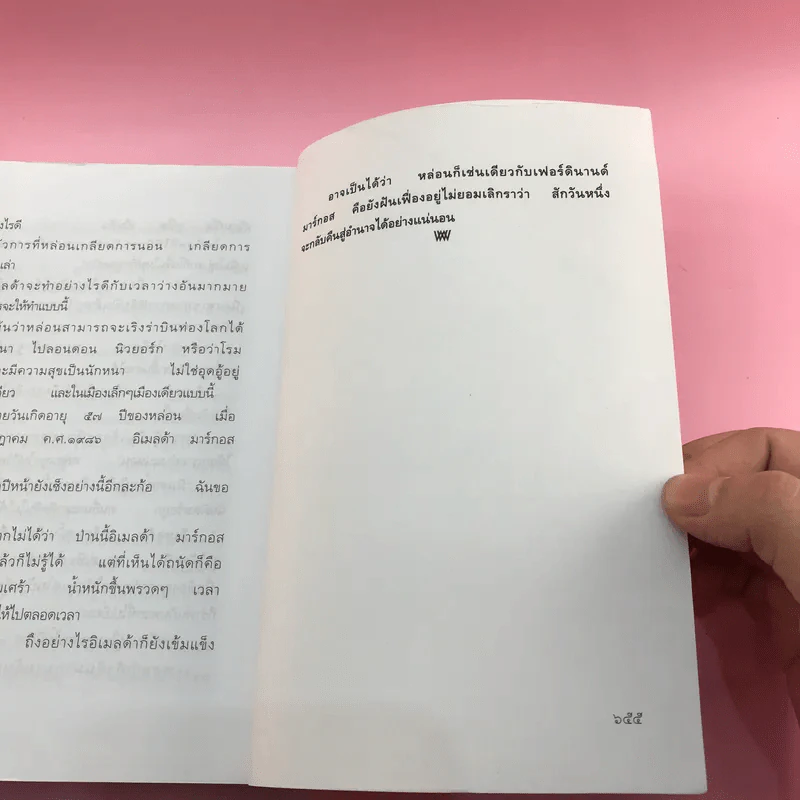 งไรดี
ัวการที่หล่อนเกลียดการนอน เกลียดการ
นล่า
มลด้าจะทำอย่างไรดีกับเวลาว่างอันมากมาย
รจะให้ทำแบบนี้
ันว่าหล่อนสามารถจะเริงร่าบินท่องโลกได้
นา ไปลอนดอน นิวยอร์ก หรือว่าโรม
ะมีความสุขเป็นนักหนา ไม่ใช่อุดอู้อยู่
ดียว และในเมืองเล็กๆเมืองเดียวแบบนี้
ยวันเกิดอายุ ๕๗ ปีของหล่อน เมื่อ
ฎาคม ค.ศ.๑๙๘๖ อิเมลด้า มาร์กอส
ปีหน้ายังเซ็งอย่างนี้อีกละก้อ ฉันขอ
กไม่ได้ว่า ป่านนี้อิเมลด้า มาร์กอส
ล้วก็ไม่รู้ได้ แต่ที่เห็นได้ถนัดก็คือ
มเศร้า น้ำหนักขึ้นพรวดๆ เวลา
ไห้ไปตลอดเวลา
ถึงอย่างไรอิเมลด้าก็ยังเข้มแข็ง
อาจเป็นได้ว่า หล่อนก็เช่นเดียวกับเฟอร์ดินานด์
มาร์กอส คือยังฝันเฟื่องอยู่ไม่ยอมเลิกราว่า สักวันหนึ่ง
จะกลับคืนสู่อำนาจได้อย่างแน่นอน
๖๕๕